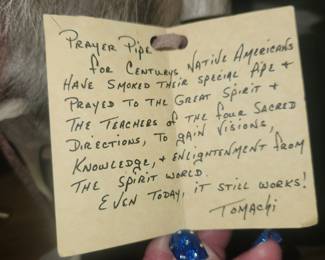 PRAYER PIPE
FOR CENTURYS NATIVE AMERICANS
HAVE SMOKED THEIR SPECIAL PIPE +
PRAYED TO THE GREAT SPIRIT +
THE TEACHERS OF THE FOUR SACRED
DIRECTIONS, TO GAIN VISIONS,
KNOWLEDGE, + ENLIGHTENMENT FROM
THE SPIRIT WORLD.
EVEN TODAY, IT STILL WORKS!
TOMACHI